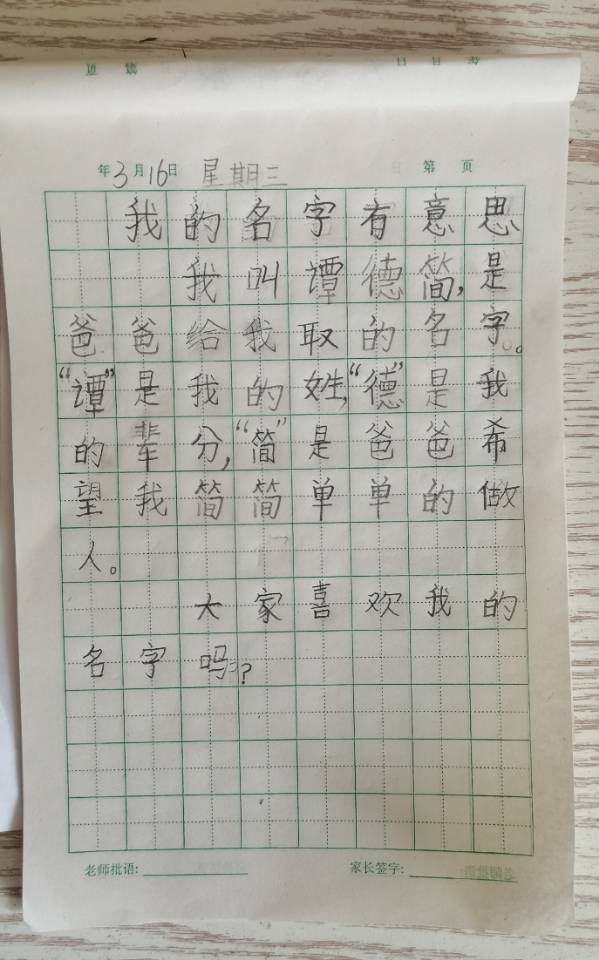 年3月16日 星期三 第 页
我的名字有意思
我叫谭德简,是
爸爸给我取的名字。
“谭”是我的姓,“德”是我
的辈分,“简”是爸爸希
望我简简单单的做
人。
大家喜欢我的
名字吗?
老师批语: 家长签字: